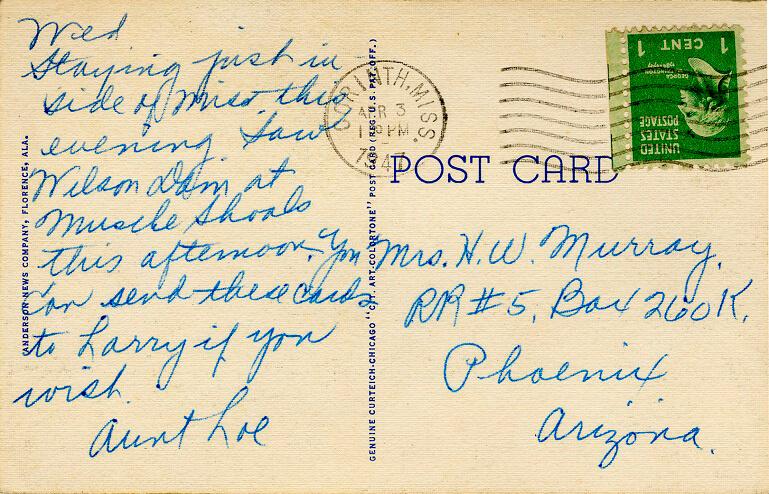 Wed
Staying just in
side of Miss. this
evening Saw
Wilson Dam at
Muscle Shoals
this afternoon. You
can send these cards
to Larry if you
wish.
Aunt Loe
ANDERSON NEWS COMPANY, FLORENCE, ALA.
GENUINE CURTEICH-CHICAGO "C.T. ART-COLORTONE" POST CARD (REG. U.S. PAT. OFF.)
CORINTH, MISS.
APR 3
1 PM
1947
POST CARD
UNITED
STATES
POSTAGE
GEORGE
WASHINGTON
1 CENT 1
Mrs. H. W. Murray.
RR #5, Box 260K.
Phoenix
Arizona.